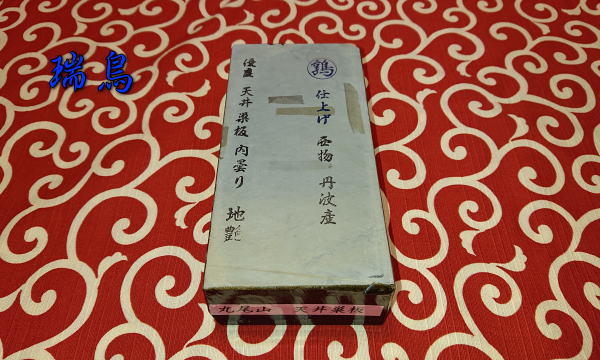 瑞鳥
鶉 仕上げ 西物 丹波産
優量 天井 巣板 内曇り 地艶
丸尾山 天井巣板